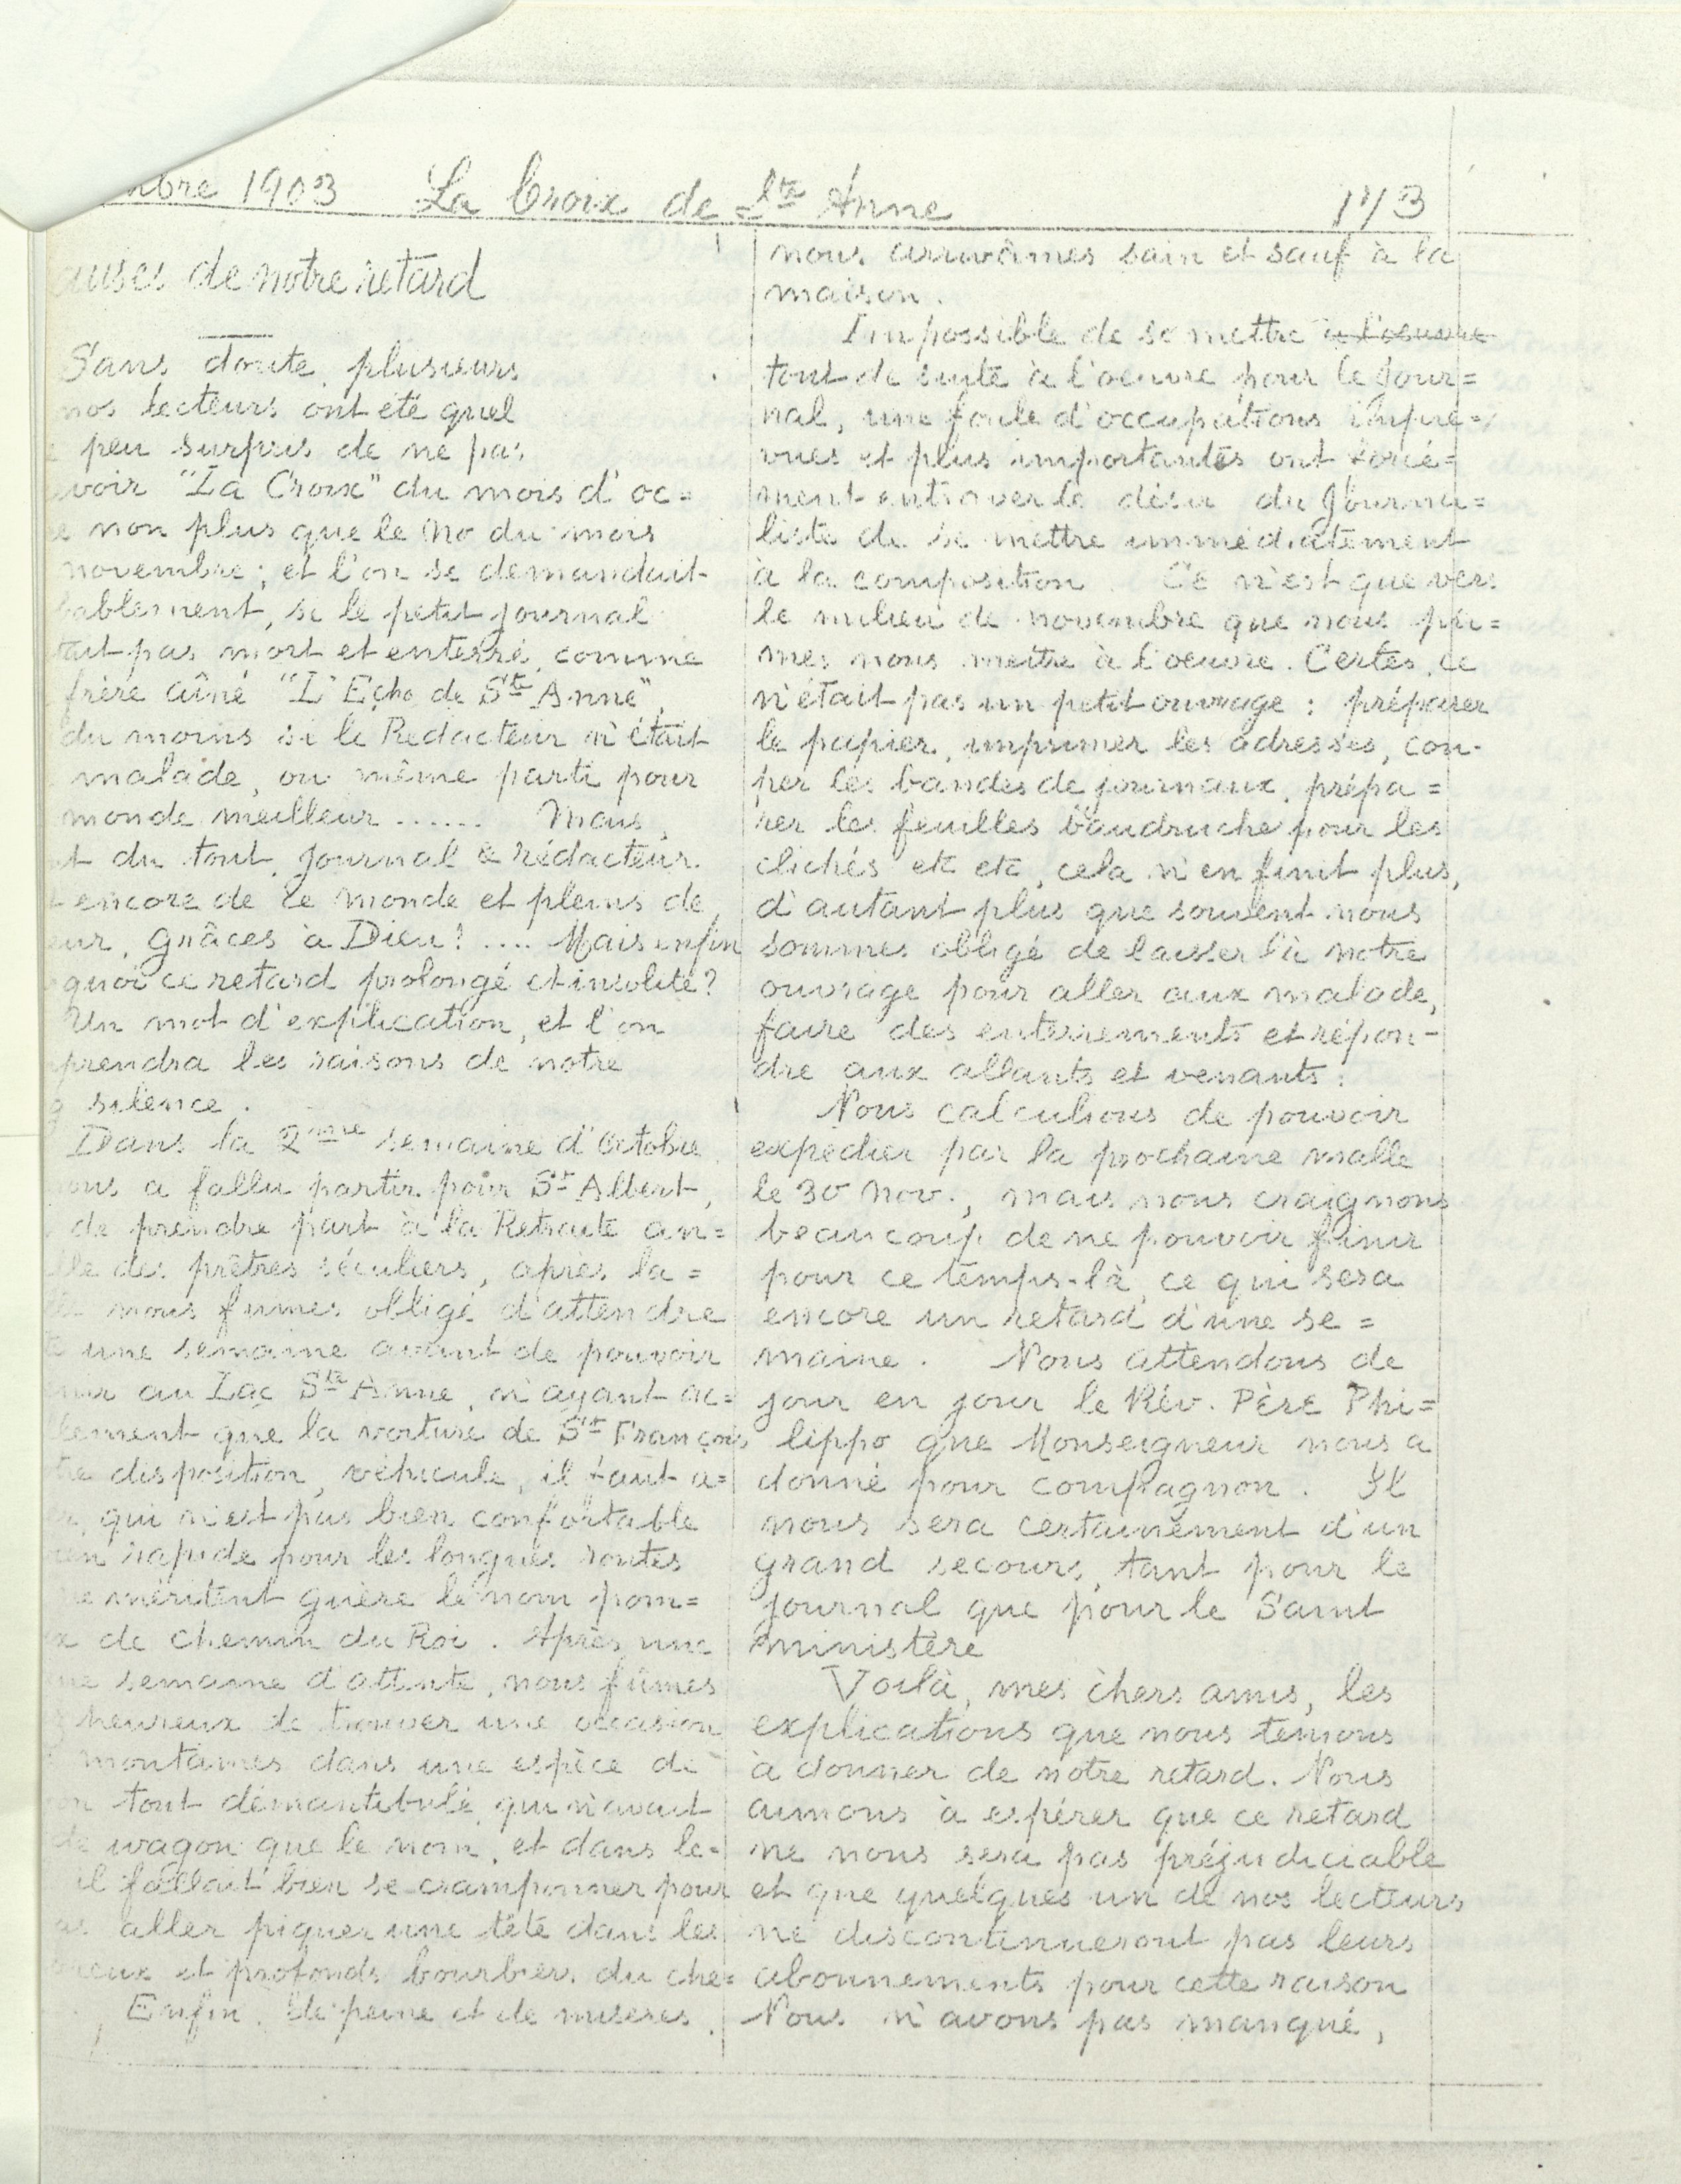 mbre 1903 La Croix de Ste Anne 173
auses de notre retard
Sans doute, plusieurs
nos lecteurs ont été quel
e peu surpris de ne pas
voir "La Croix" du mois d'oc=
e non plus que le No du mois
novembre; et l'on se demandait
bablement, si le petit journal
tait pas mort et enterré, comme
frère aîné "L'Echo de Ste Anne",
du moins si le Rédacteur n'était
malade, ou même parti pour
monde meilleur ...... Mais,
t du tout, journal & rédacteur
t encore de ce monde et pleins de
eur, grâces à Dieu! .... Mais enfin
quoi ce retard prolongé et insolite?
Un mot d'explication, et l'on
prendra les raisons de notre
g silence.
Dans la 2me semaine d'Octobre
ous a fallu partir pour St Albert,
de prendre part à la Retraite an=
lle des prêtres séculiers, après la=
lle nous fûmes obligé d'attendre
te une semaine avant de pouvoir
nir au Lac Ste Anne, n'ayant ac=
lement que la voiture de St François
tre disposition, véhicule, il faut a=
er, qui n'est pas bien confortable
en rapide pour les longues routes
e méritent guère le nom pom=
x de chemin du Roi. Après une
ue semaine d'attente, nous fûmes
z heureux de trouver une occasion
montâmes dans une espèce de
on tout démantibulé, qui n'avait
de wagon que le nom, et dans le=
il fallait bien se cramponner pour
as aller piquer une tête dans les
breux et profonds bourbiers du che=
Enfin, de peine et de misères,
nous arrivâmes sain et sauf à la
maison.
Impossible de se mettre à l'oeuvre
tout de suite à l'oeuvre pour le Jour=
nal, une foule d'occupations impré=
vues et plus importantes ont forcé=
ment entraver le désir du Journa=
liste de se mettre immédiatement
à la composition. Ce n'est que vers
le milieu de novembre que nous pû=
mes nous mettre à l'oeuvre. Certes, ce
n'était pas un petit ouvrage : préparer
le papier, imprimer les adresses, cou-
per les bandes de journaux, prépa=
rer les feuilles baudruche pour les
clichés etc etc, cela n'en finit plus,
d'autant plus que souvent nous
sommes obligé de laisser là notre
ouvrage pour aller aux malade,
faire des enterrements et répon-
dre aux allants et venants.
Nous calculions de pouvoir
expédier par la prochaine malle
le 30 Nov., mais nous craignons
beaucoup de ne pouvoir finir
pour ce temps-là, ce qui sera
encore un retard d'une se=
maine. Nous attendons de
jour en jour le Rév. Père Phi=
lippo que Monseigneur nous a
donné pour compagnon. Il
nous sera certainement d'un
grand secours, tant pour le
journal que pour le Saint
ministère
Voilà, mes chers amis, les
explications que nous tenions
à donner de notre retard. Nous
aimons à espérer que ce retard
ne nous sera pas préjudiciable
et que quelques un de nos lecteurs
ne discontinueront pas leurs
abonnements pour cette raison
Nous n'avons pas manqué,